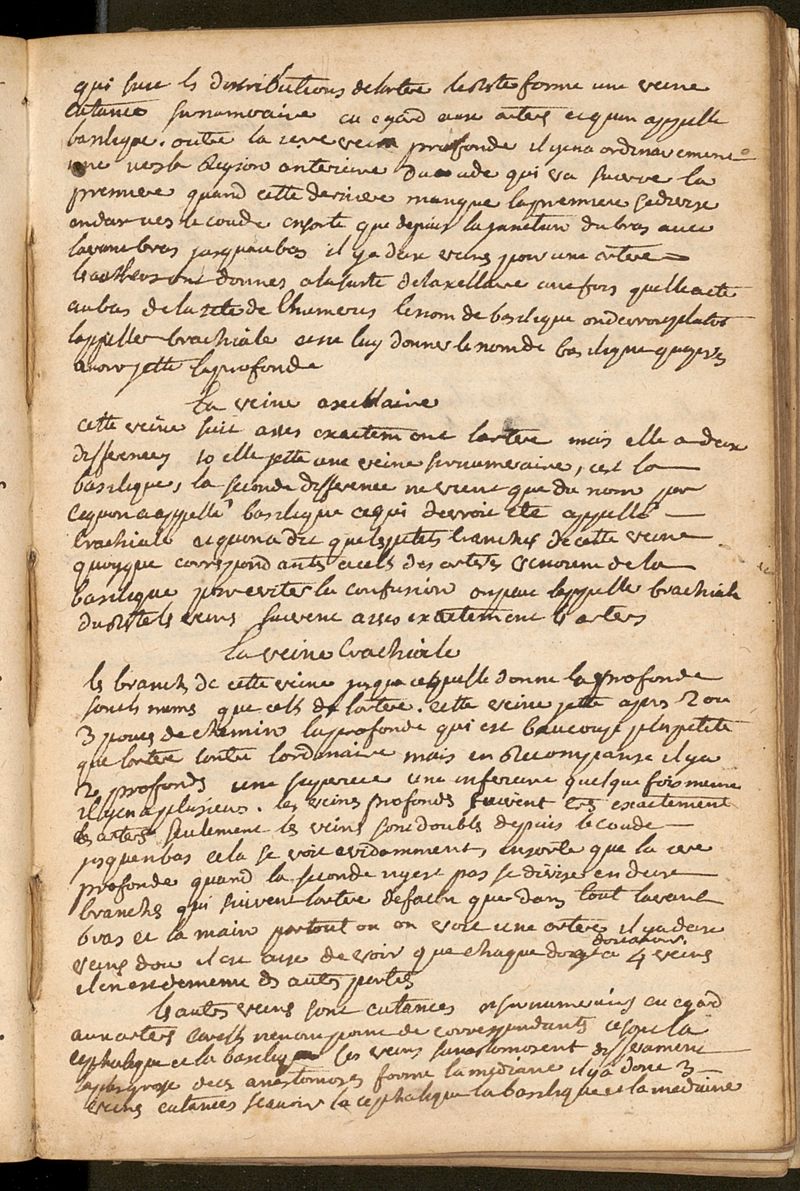 qui suit ls distributions de lartere le reste forme une veine
cutanée surnumeraire eu egard aux arters et quon appelle
basilique. outre la 1ere veine profonde il yena ordinairement
une vers la Region anterieure du coude qui va suivre la
premiere quand cette derniere manque la premiere se divise
endeux vers le coude ensorte que depuis la jonction du bras avec
lavant bras jusquau bas il ya deux veins pour une artere
ls autheurs ont donnes a la suitte de laxellaire une fois quelle a eté
au bas de la tete de lhumerus le nom de basilique on devroit plutot
lappeller brachiale et ne luy donner le nom de basilique quapres
avoir jetté la profonde
La veine axillaire
cette veine suit asses exactement lartere mais elle a deux
differences 1o elle jette une veine surnumeraire, cest la
basilique, la seconde difference ne vient que du nom par
cequon a appellé basilique ce qui devroit etre appellé
brachiale et quon a dit que ls petits branches de cette veine
quoyque correspondants a cells des arters venoient de la
basilique pour eviter la confusion on peut lappeller brachiale
du reste ls veins suivent asses exactement ls arters
La veine brachiale
ls branchs de cette veine jusqua ce quelle donne la profonde
sont ls mems que cells de lartere. cette veine jette apres 2 ou
3 pouces de chemin la profonde qui est beaucoup plus petite
que lartere contre lordinaire mais en recompense il ya
2 profonds une superieure une inferieure quelque fois meme
il yena plusieurs. les veins profonds suivent tres exactement
ls arters seulement ls veins sont doubles depuis le coude
jusquenbas cela se voit evidamment, ensorte que la 1ere
profonde quand la seconde nyest pas se divise en deux
branchs qui suivent lartere defaçon que dans tout lavant
bras et la main partout ou on voit une artere il ya deux
veins donc il est aisé de voir que chaque doigt a 4 veins
il en est de meme ds autres parties
ls autres veins sont cutanées et surnumeraires eu egard
aux arters cells nen ont point de correspondants ce sont la
cephalique et la basilique ces veins sanastomosent differament
la plus grosse de ces anastomoses forme la mediane il ya donc 3
veins cutanées scavoir la cephalique la basilique et la mediane